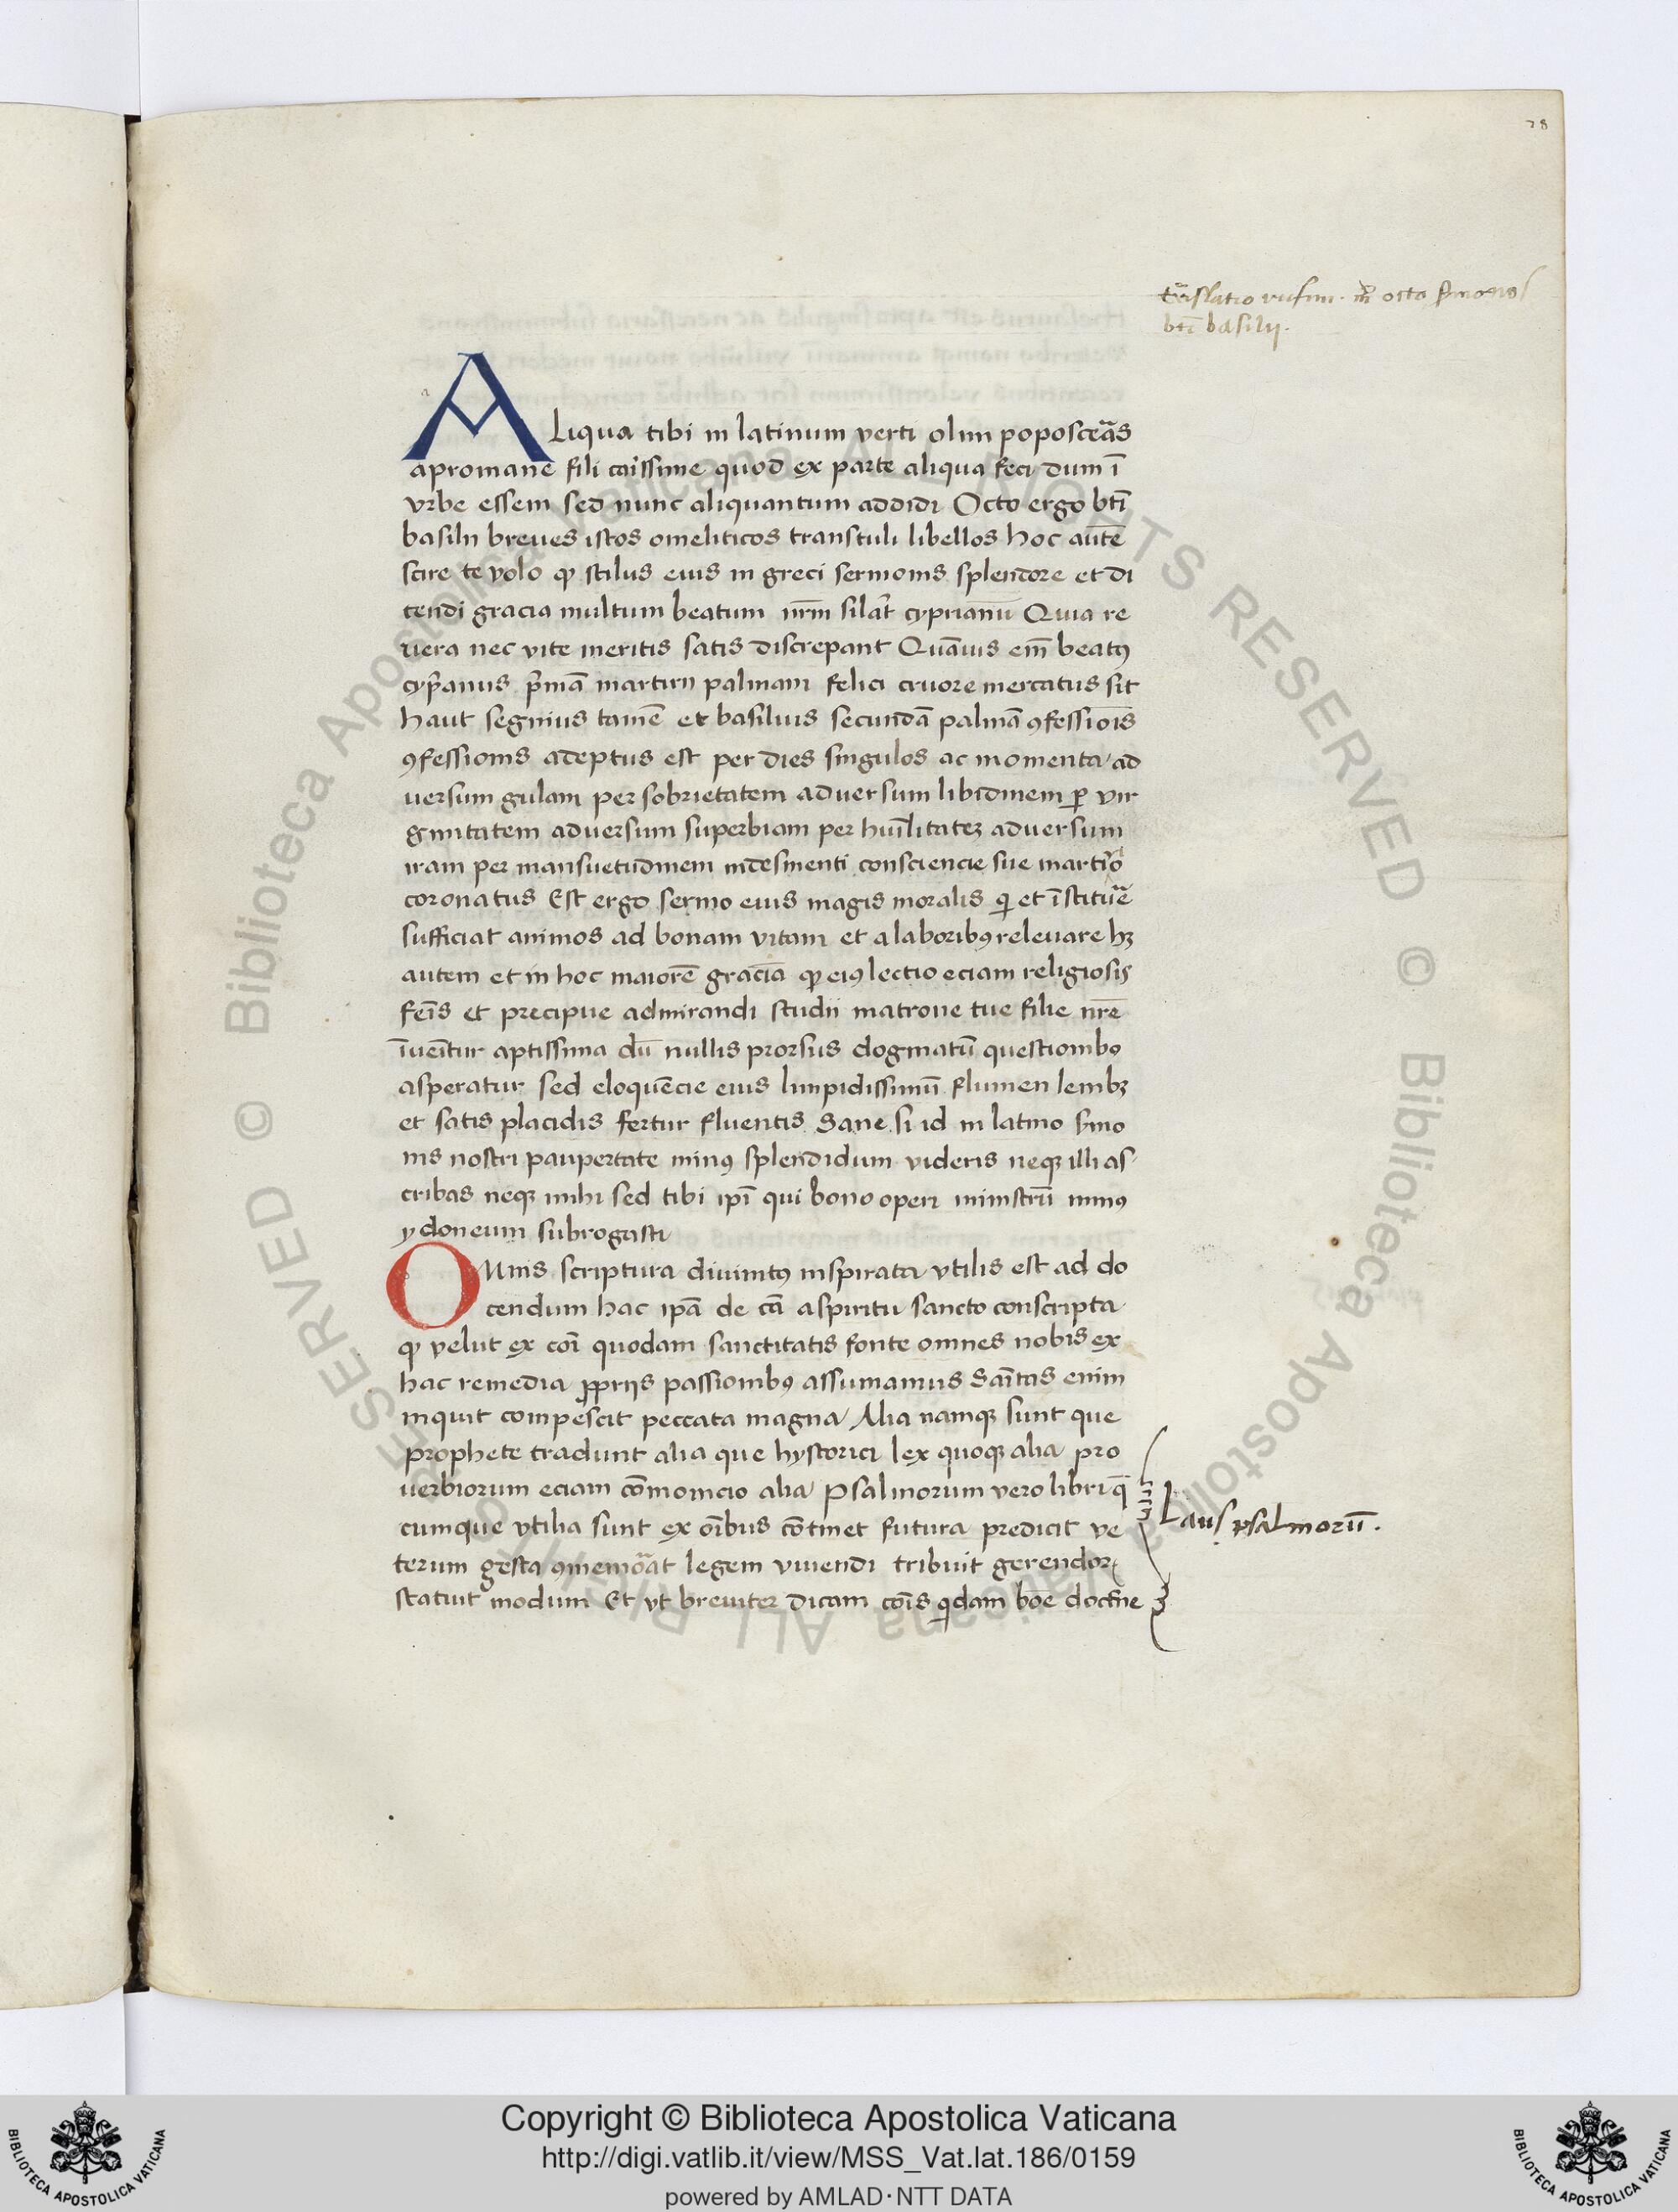 78
trãslatio rufini. in octo sermones
bti basilij.
ALiqua tibi in latinum verti olim poposcẽas
apromane fili carissime quod ex parte aliqua feci dum ĩ
vrbe essem sed nunc aliquantum addidi Octo ergo btĩ
basilii breues istos omeliticos transtuli libellos hoc autẽ
scire te volo ꝙ stilus eius in greci sermonis splendore et di
cendi gracia multum beatum nr̃m silat̃ cyprianũ Quia re
uera nec vite meritis satis discrepant Quãuis em̃ beatꝰ
cyp̃anus p̃mã martirii palmam felici cruore mercatus sit
haut segnius tamẽ et basilius secundã palmã ꝯfessiõis
ꝯfessionis adeptus est per dies singulos ac momenta ad
uersum gulam per sobrietatem aduersum libidinem ꝑ vir
ginitatem aduersum superbiam per huĩlitateꝫ aduersum
iram per mansuetudinem indesinenti consciencie sue martirio
coronatus Est ergo sermo eius magis moralis qi et ĩstituẽ
sufficiat animos ad bonam vitam et a laboribꝰ releuare hꝫ
autem et in hoc maiorẽ graciã ꝙ eiꝰ lectio eciam religiosis
fẽis et precipue admirandi studii matrone tue filie nr̃e
ĩueĩtur aptissima dũ nullis prorsus dogmatũ questionibꝰ
asperatur sed eloquẽcie eius limpidissimũ flumen lenibꝫ
et satis placidis fertur fluentis Sane si id in latino s̃mo
nis nostri paupertate minꝰ splendidum videris neqꝫ illi as
cribas neqꝫ mihi sed tibi ipĩ qui bono operi ministrũ minꝰ
ydoneum subrogasti
OMnis scriptura diuinitꝰ inspirata vtilis est ad do
cendum hac ipã de cã aspiritu sancto conscripta
ꝙ velut ex cõi quodam sanctitatis fonte omnes nobis ex
hac remedia ꝓprijs passionibꝰ assumamus Sãitas enim
inquit compescit peccata magna Alia namqꝫ sunt que
prophete tradunt alia que hystorici lex quoqꝫ alia pro
uerbiorum eciam cõmonicio alia Psalmorum vero libri q̃
cumque vtilia sunt ex oĩbus cõtinet futura predicit ve
terum gesta ꝯmemorãt legem viuendi tribuit gerendoꝝ
statuit modum Et vt breuiter dicam cõis qidam bõe doct̃ne
Laus psalmorũ.
Copyright © Biblioteca Apostolica Vaticana
http://digi.vatlib.it/view/MSS_Vat.lat.186/0159
powered by AMLAD·NTT DATA
BIBLIOTECA APOSTOLICA VATICANA
BIBLIOTECA APOSTOLICA VATICANA
© Biblioteca Apostolica Vaticana ALL RIGHTS RESERVED © Biblioteca Apostolica Vaticana ALL RIGHTS RESERVED